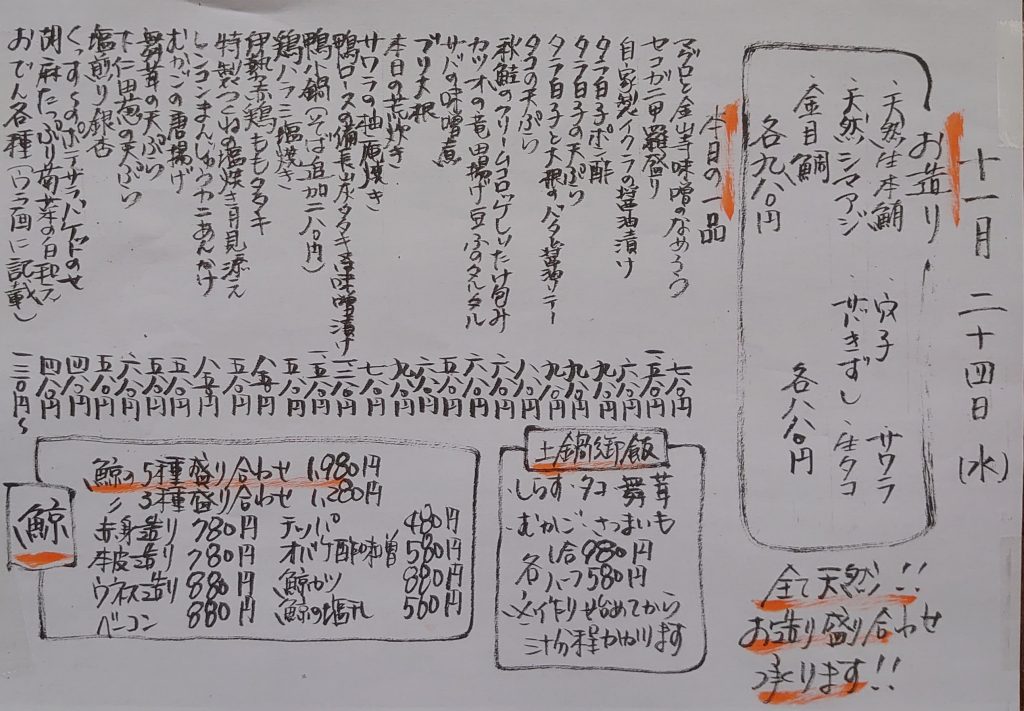 十一月 二十四日(水)
お造り
・天然生本鮪
・天然シマアジ
・金目鯛
各九八〇円
・穴子
・サバきずし
・サワラ
・生タコ
各八八〇円
全て天然!!
お造り盛り合わせ
承ります!!
本日の一品
マグロと金山寺味噌のなめろう 七八〇円
セコガニ甲羅盛り
自家製イクラの醤油漬け 六八〇円
タラ白子ポン酢 九八〇円
タラ白子の天ぷら 九八〇円
タラ白子と大根のバター醤油ソテー
タコの天ぷら 八八〇円
秋鮭のクリームコロッケしいたけ包み 六八〇円
カツオの竜田揚げ豆ふのタルタル 六八〇円
サバの味噌煮 五八〇円
ブリ大根 六八〇円
本日の荒炊き 九八〇円
サワラの柚庵焼き 七八〇円
鴨ロースの備長炭タタキ 味噌漬け
鴨小鍋(そば追加二八〇円)
鶏ハラミ塩焼き 五八〇円
伊勢赤鶏ももタタキ
特製つくねの塩焼き月見添え 五八〇円
レンコンまんじゅうカニあんかけ
むかごの唐揚げ 五八〇円
舞茸の天ぷら 五八〇円
下仁田葱の天ぷら 六八〇円
塩煎り銀杏 五八〇円
くんすぃのポテサラバゲットのせ 四八〇円
胡麻たっぷり菊芽の白和え 四八〇円
おでん各種(ウラ面に記載) 一三〇円〜
土鍋御飯
・しらす・タコ・舞茸
・むかご・さつまいも
各1合980円
各ハーフ580円
※作り始めてから
三十分程かかります
鯨
鯨の5種盛り合わせ 1,980円
〃 3種盛り合わせ 1,280円
赤身造り 780円
本皮造り 780円
ウネス造り 880円
ベーコン 880円
テッパ 480円
オバケ酢味噌 580円
鯨カツ 880円
鯨の塩タレ 580円